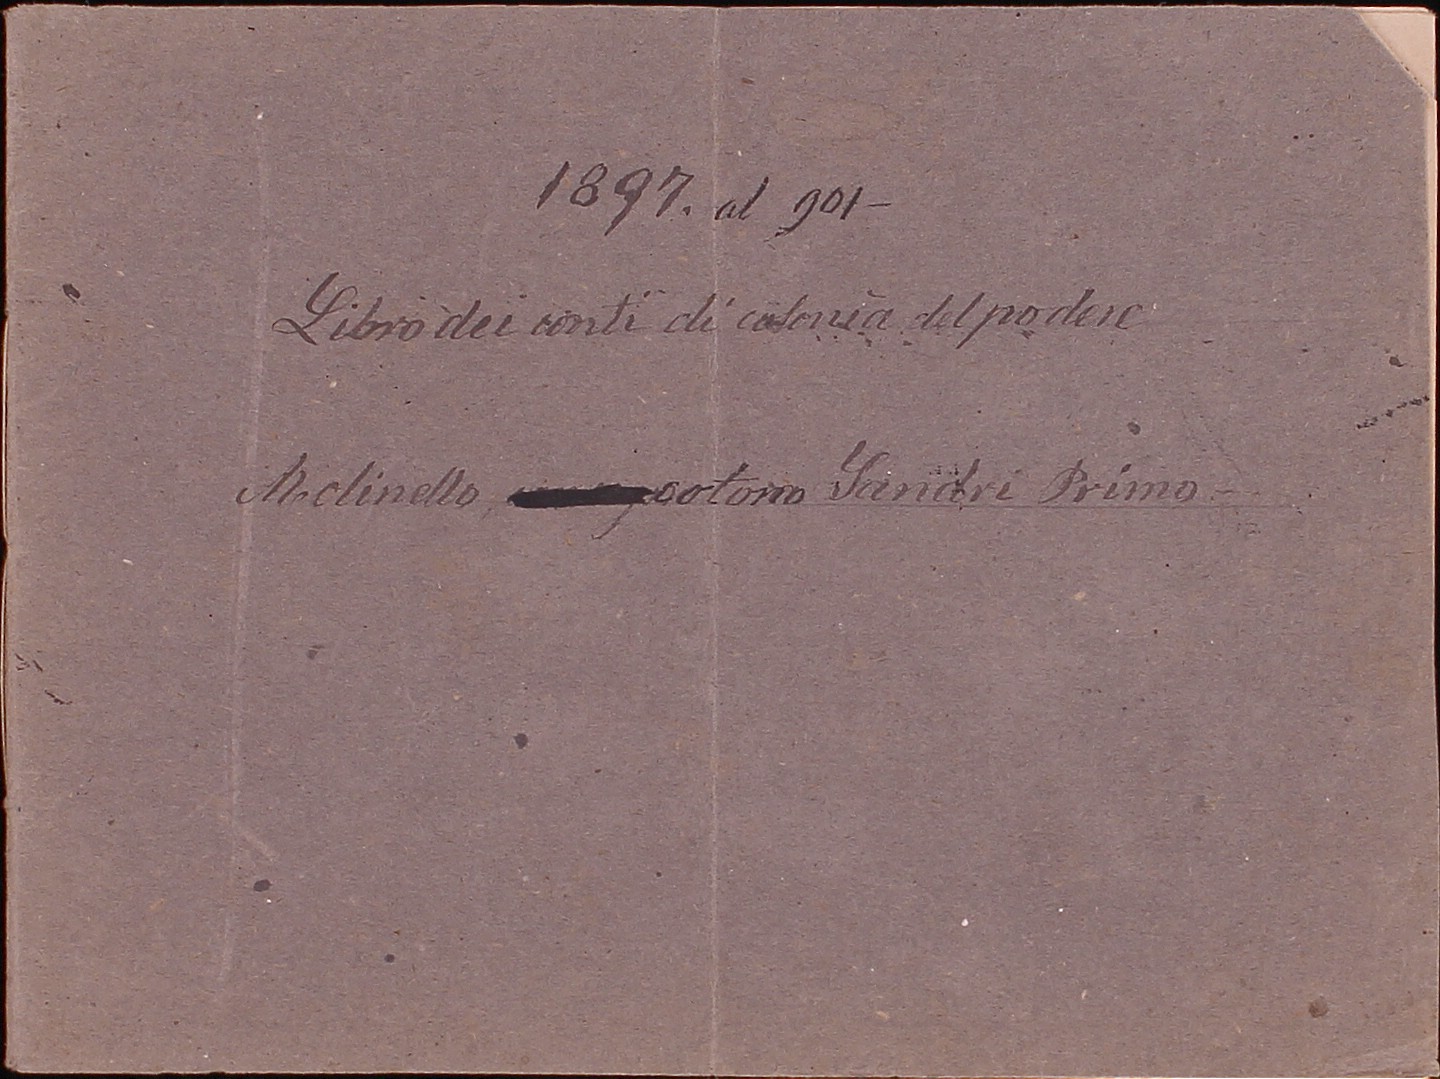 1897. al 901-
Libro dei conti di colonia del podere
Molinello, colono Sandri Primo-